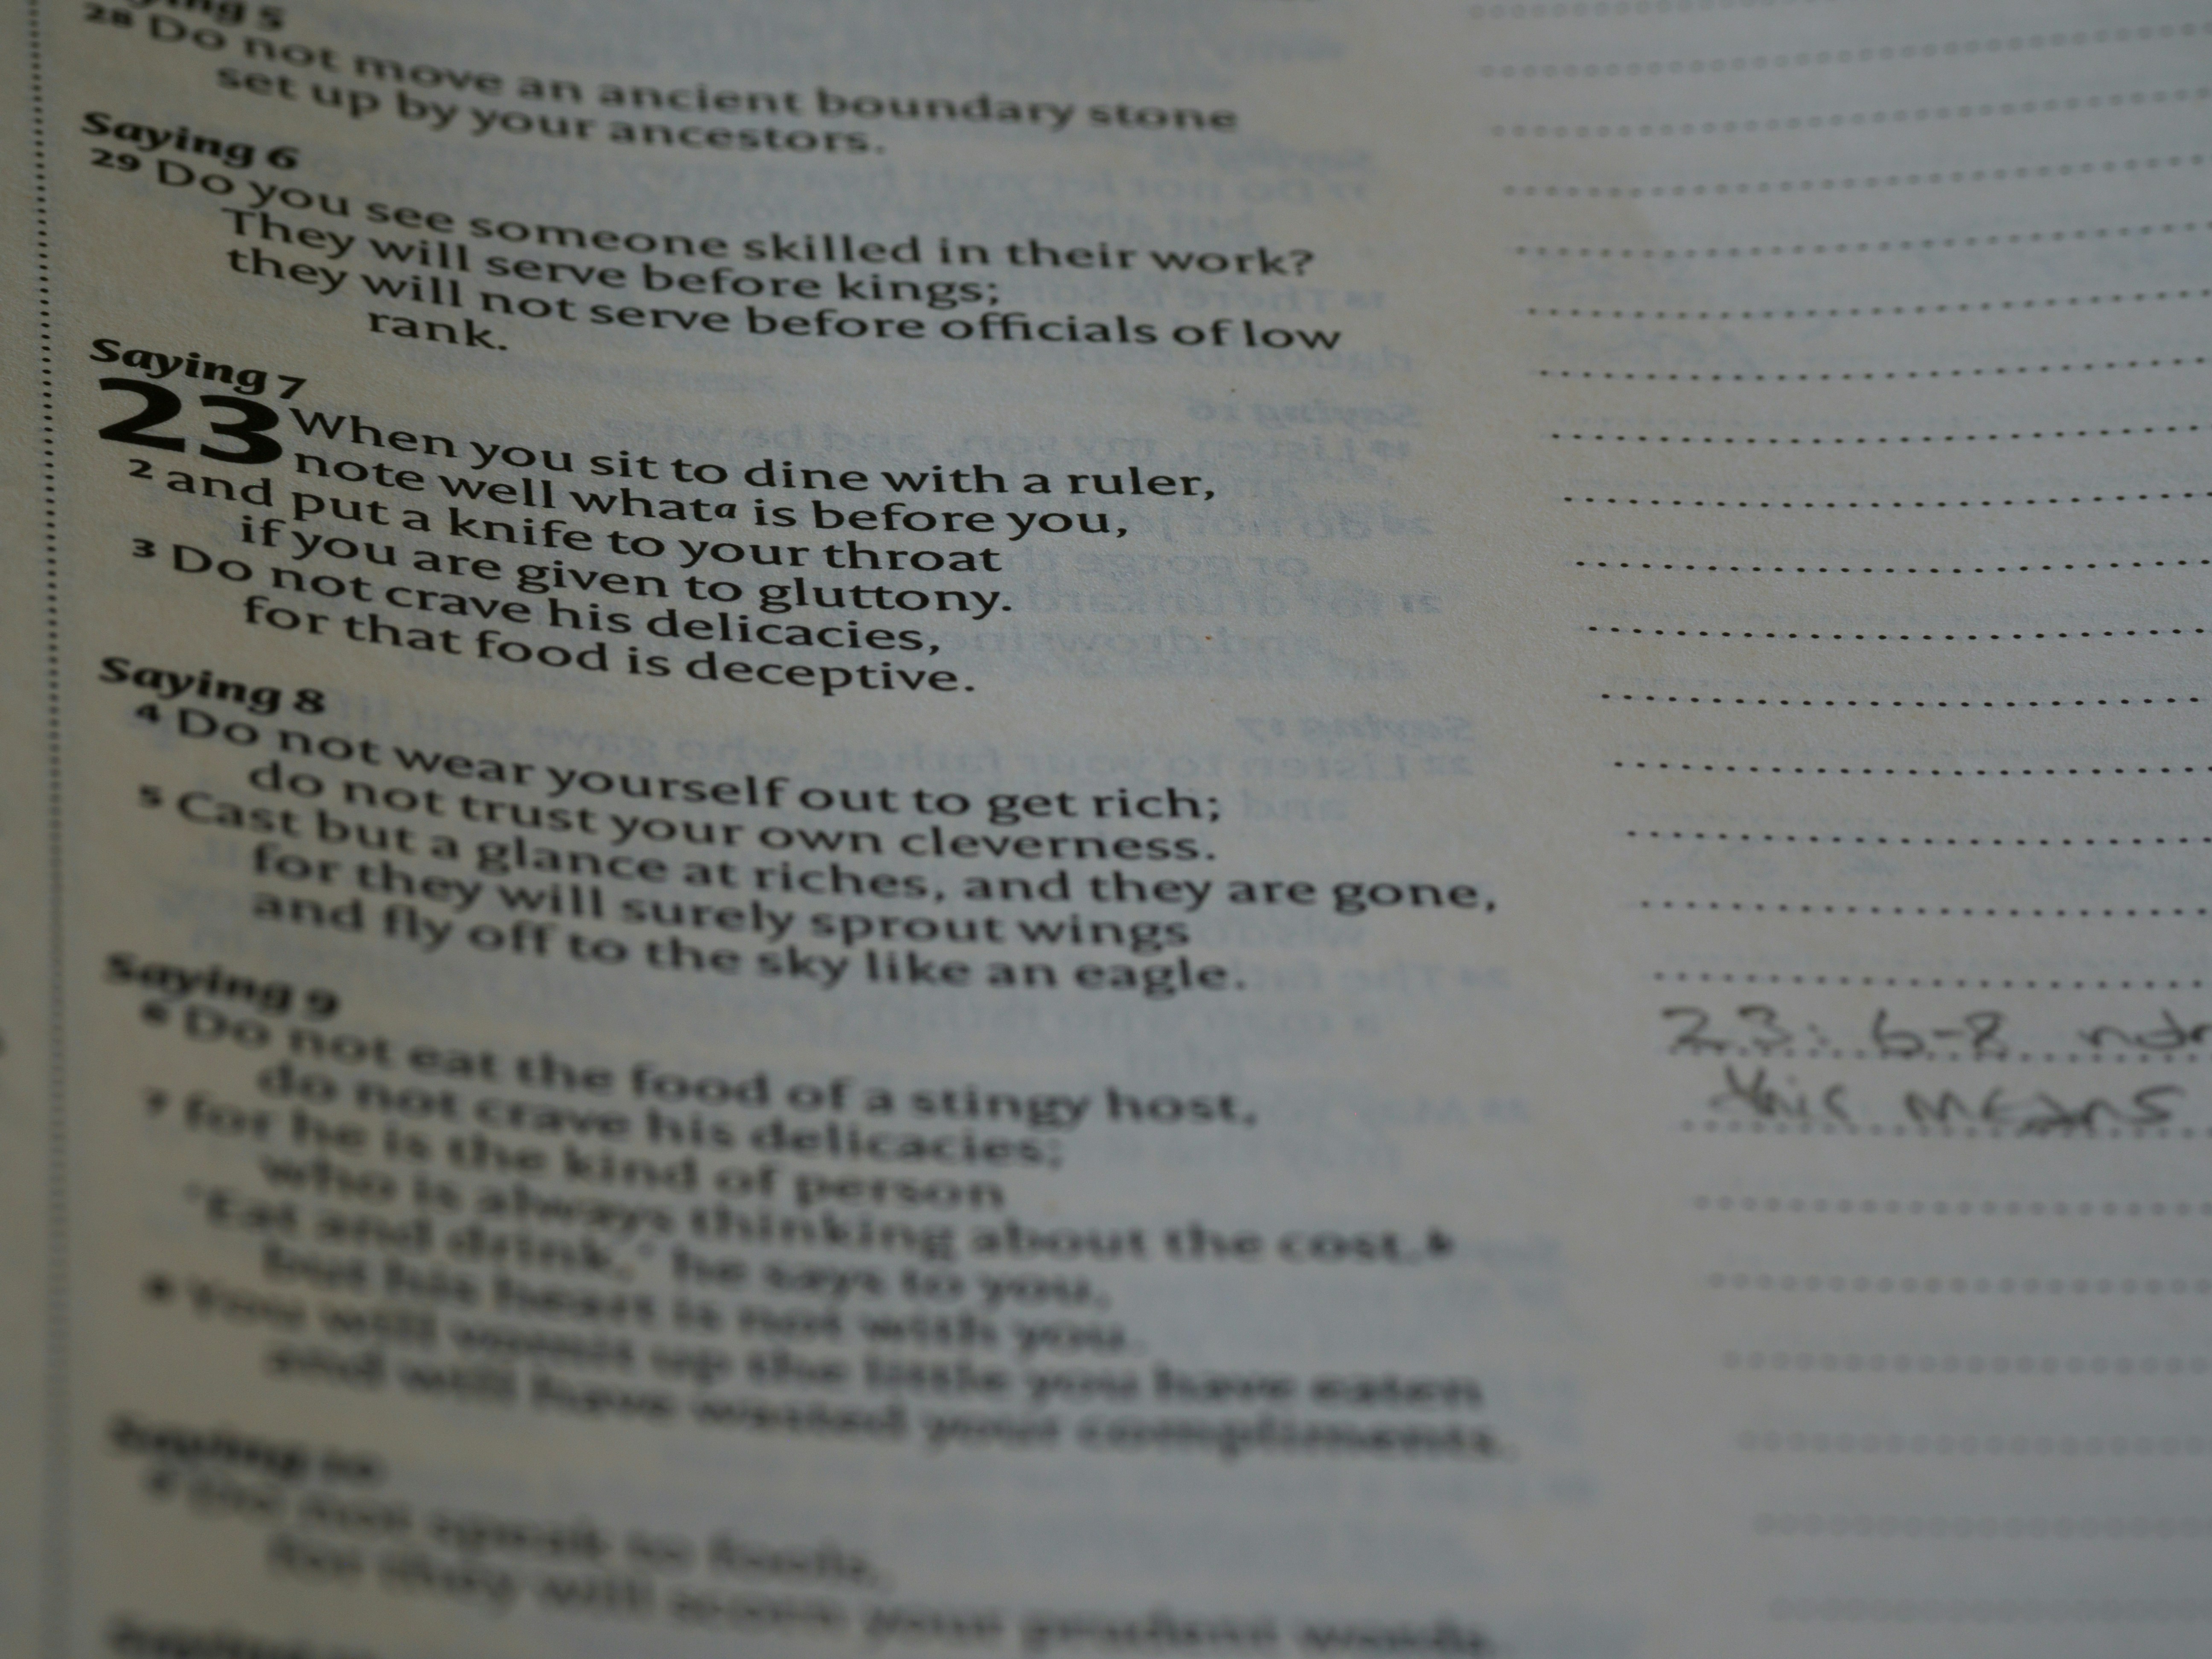 28 Do not move an ancient boundary stone
set up by your ancestors.
Saying 6
29 Do you see someone skilled in their work?
They will serve before kings;
they will not serve before officials of low
rank.
Saying 7
23 When you sit to dine with a ruler,
note well what a is before you,
2 and put a knife to your throat
if you are given to gluttony.
3 Do not crave his delicacies,
for that food is deceptive.
Saying 8
4 Do not wear yourself out to get rich;
do not trust your own cleverness.
5 Cast but a glance at riches, and they are gone,
for they will surely sprout wings
and fly off to the sky like an eagle.
Saying 9
6 Do not eat the food of a stingy host,
do not crave his delicacies;
7 for he is the kind of person
who is always thinking about the cost. b
'Eat and drink,' he says to you,
but his heart is not with you.
8 You will vomit up the little you have eaten
and will have wasted your compliments.
Saying 10
9 Do not speak to fools,
for they will scorn your prudent words.
23: 6-8
this means